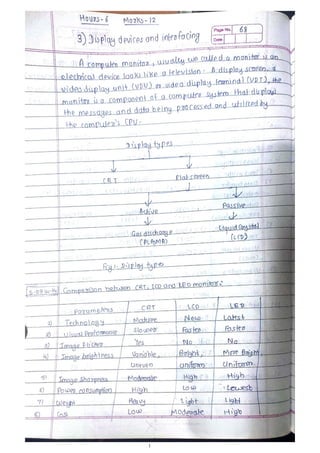 Hours-6 Marks-12
Page No. 68
Date
3) Display devices and interfacing
A computer monitor, usually we called a monitor is an
electrical device looks like a television. A display screen, a
video display unit (VDU) or video display terminal (VDT), the
monitor is a component of a computer system that displays
the messages and data being processed and utilized by
the computer's CPU.
Display types
CRT Flat screen
Active Passive
Gas discharge Liquid Crystal
(PLASMA) (LCD)
Fig:- Display types
Comparison between CRT, LCD and LED monitors:
Parameters CRT LCD LED
1) Technology Mature New Latest
2) Visual Performance Slower Faster Faster
3) Image Flicker Yes No No
4) Image brightness Variable, Bright, More Bright,
Uneven Uniform Uniform
5) Image Sharpness Moderate High High
6) Power consumption High Low Lowest
7) Weight Heavy Light Light
8) Cost Low Moderate High
1